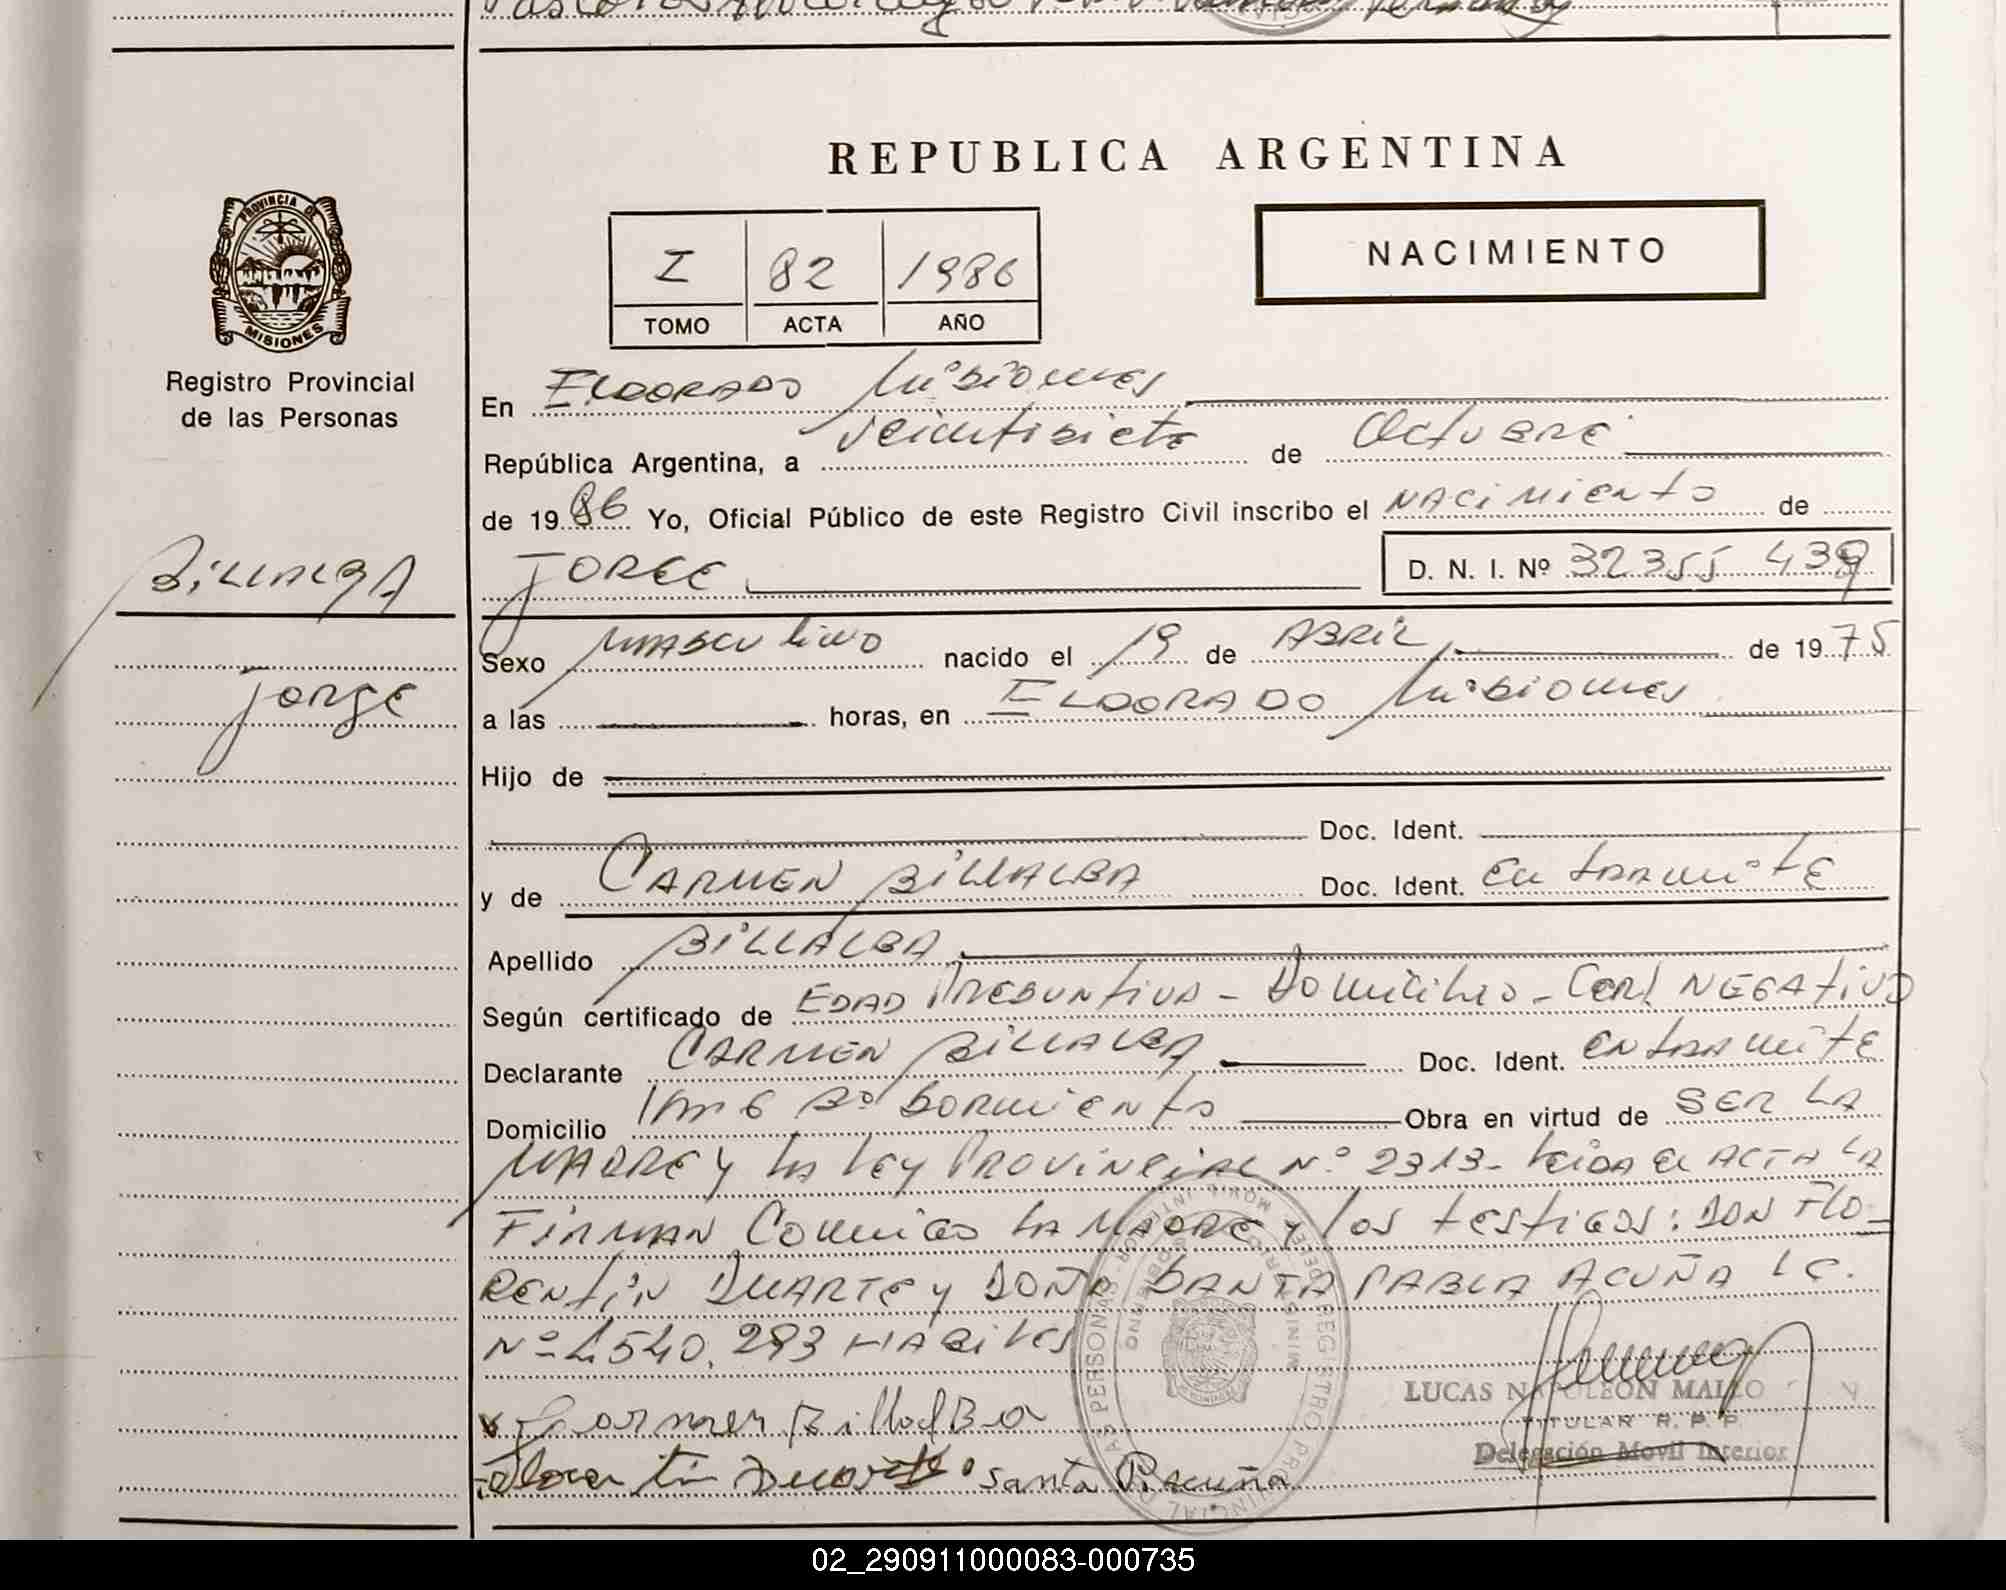 REPUBLICA ARGENTINA
PROVINCIA DE
MISIONES
Registro Provincial
de las Personas
I 82 1986
TOMO ACTA AÑO
NACIMIENTO
En ELDORADO Misiones
República Argentina, a veintisiete de Octubre
de 1986 Yo, Oficial Público de este Registro Civil inscribo el NACIMIENTO de
JORGE D. N. I. Nº 32355 439
BILLALBA
Jorge
Sexo MASCULINO nacido el 19 de ABRIL de 1975
a las horas, en ELDORADO Misiones
Hijo de
Doc. Ident.
y de CARMEN BILLALBA Doc. Ident. En tramite
Apellido BILLALBA
Según certificado de EDAD PRESUNTIVA - Domicilio - Cert NEGATIVO
Declarante CARMEN BILLALBA Doc. Ident. En tramite
Domicilio Km 6 Bº SARMIENTO Obra en virtud de SER LA
MADRE y LA LEY PROVINCIAL Nº 2313 - Leida el ACTA LA
FIRMAN Conmigo LA MADRE y los testigos: DON FLO-
RENTIN DUARTE y DOÑA SANTA PABLA ACUÑA LC.
Nº 4.540.293 HABILES
x Carmen BillalBa
Florentin Duarte Santa P. Acuña
LUCAS NAPOLEON MALLO
TITULAR R. P. P.
Delegación Movil Interior
02_290911000083-000735